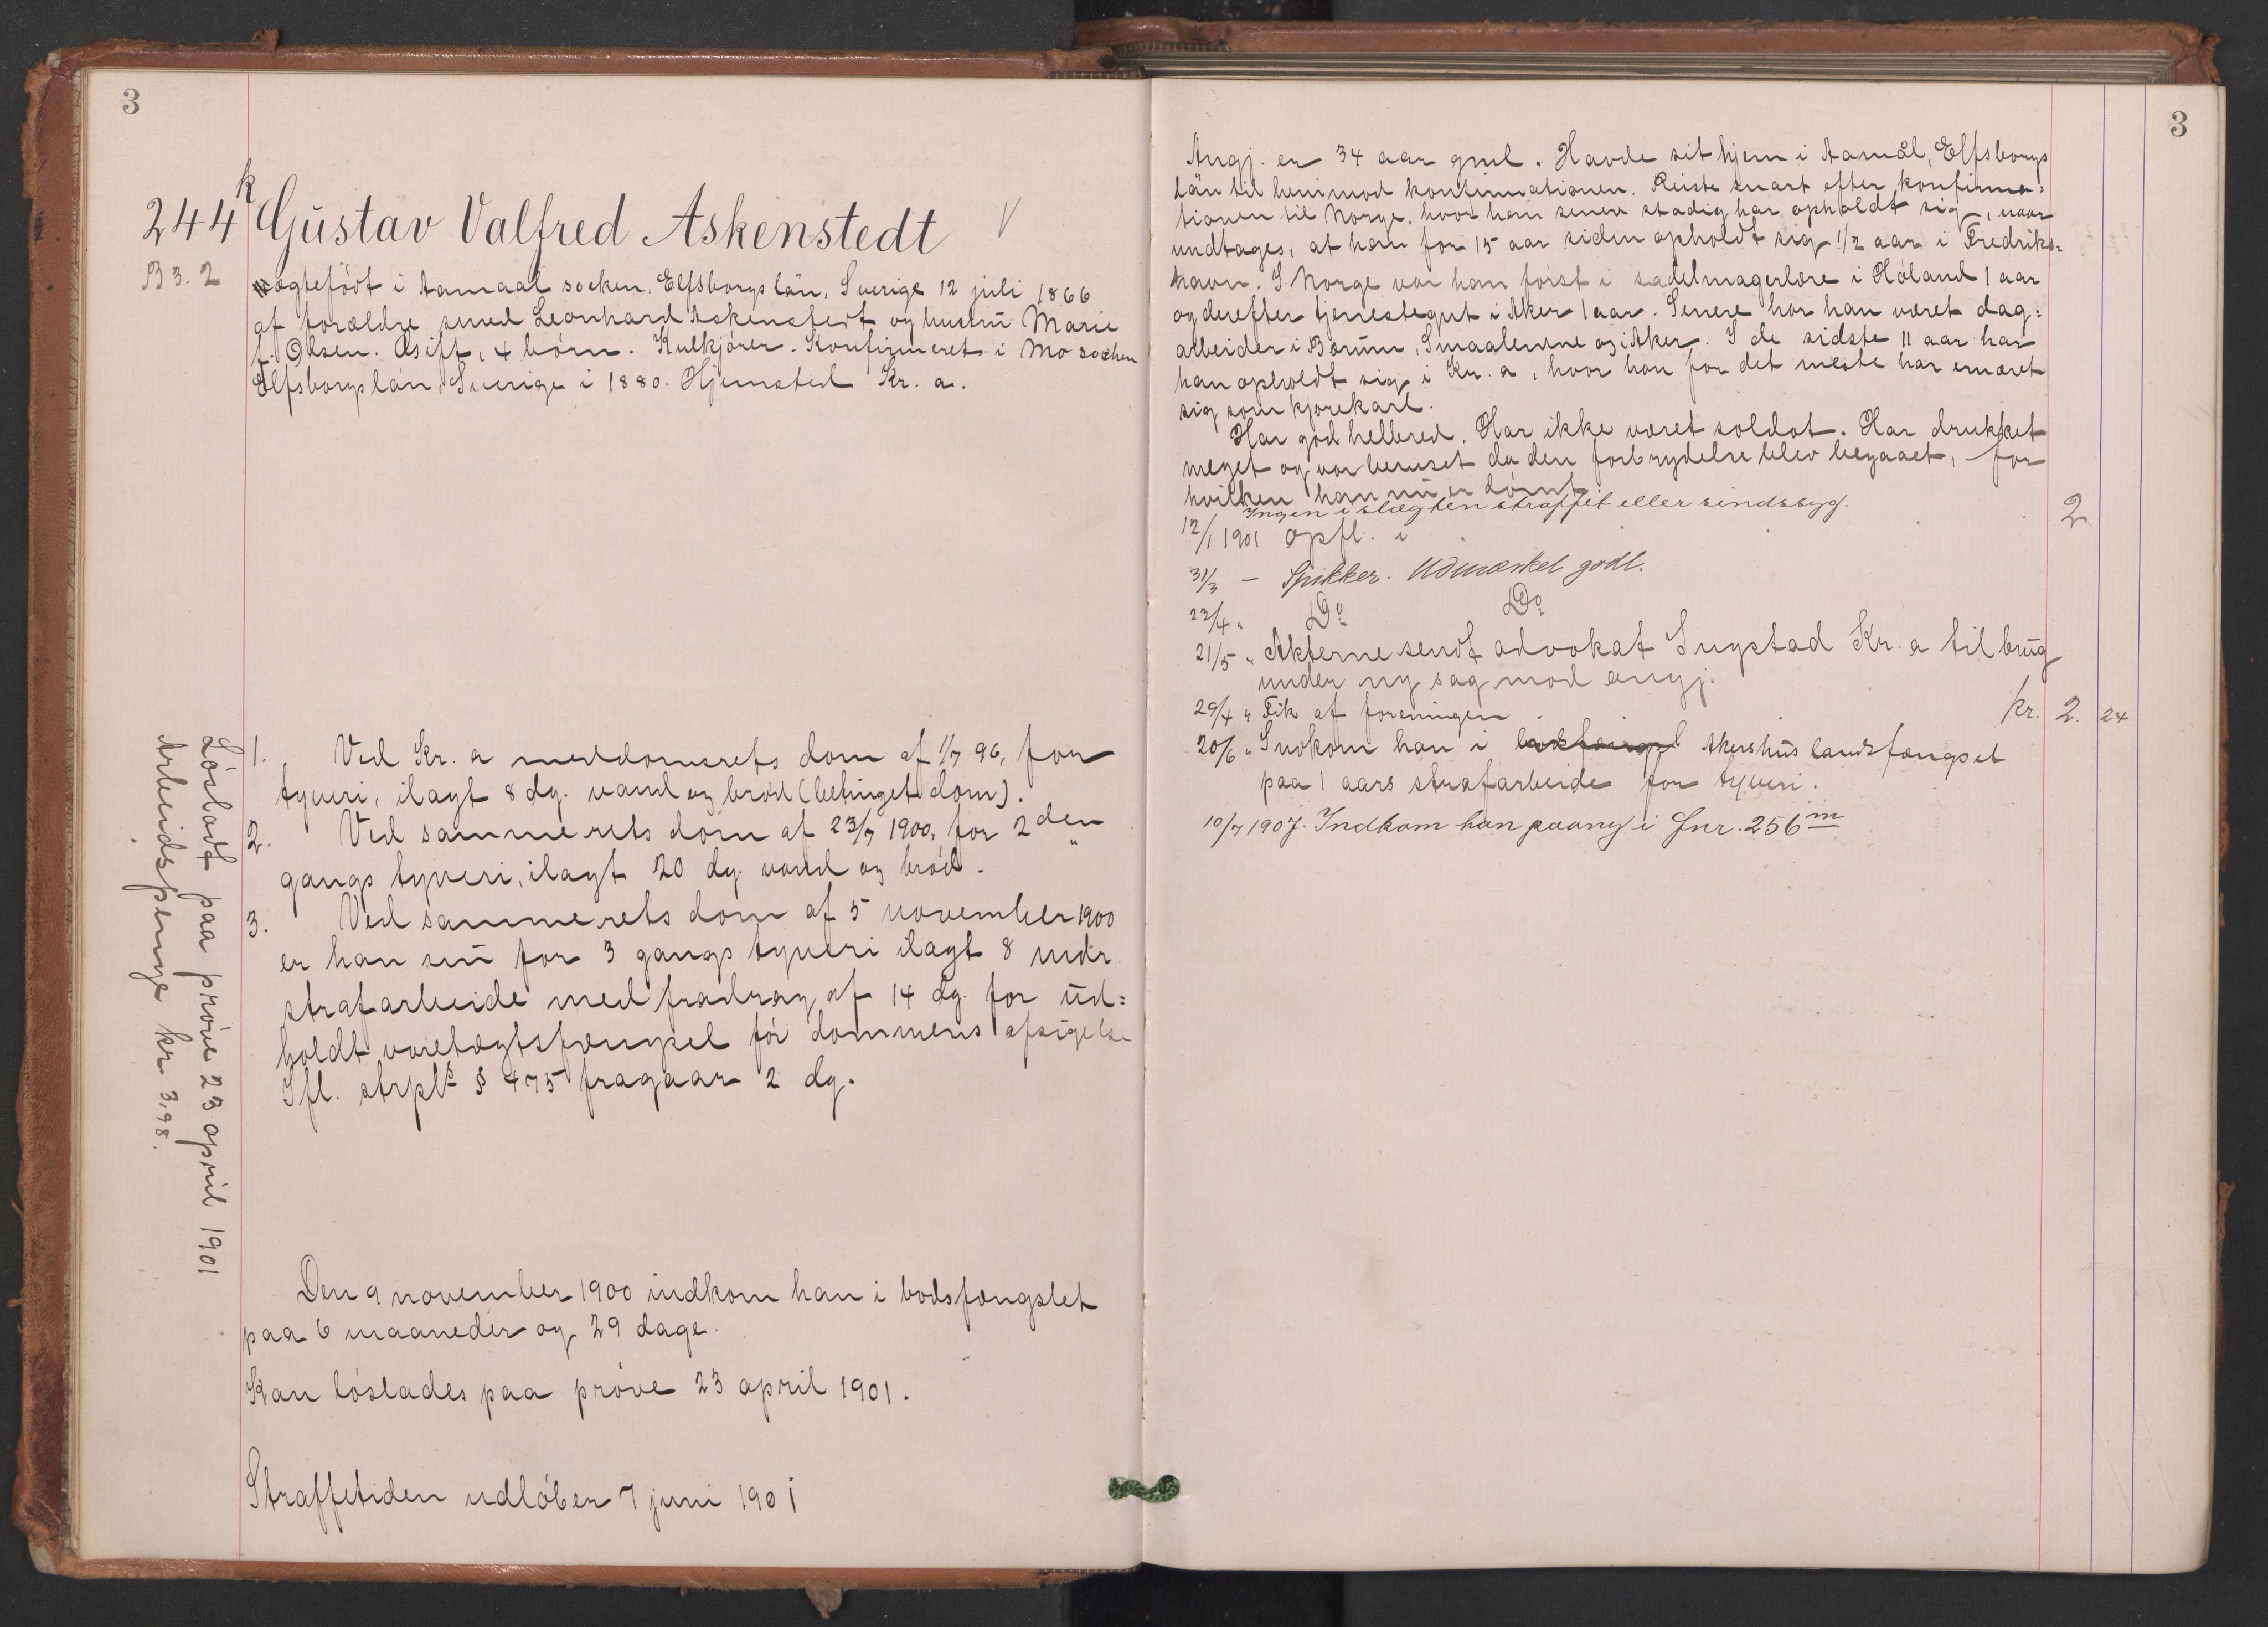 3
244 k Gustav Valfred Askenstedt V
B 3. 2
Ægtefödt i Aamaal socken, Elfsborgs län, Sverige 12 juli 1866
af forældre smed Leonhard Askenstedt og hustru Marie
f. Olsen. Gift, 4 börn. Kulkjörer. Konfirmeret i Mo socken
Elfsborgs län, Sverige i 1880. Hjemsted Kr. a.
1. Ved Kr. a meddomsrets dom af 1/7 96, for
tyveri, ilagt 8 dg. vand og bröd (betinget dom).
2. Ved samme rets dom af 23/7 1900, for 2den
gangs tyveri, ilagt 20 dg. vand og bröd.
3. Ved samme rets dom af 5 november 1900
er han nu for 3 gangs tyveri ilagt 8 mdr.
strafarbeide med fradrag af 14 dg. for ud=
holdt varetægtsfængsel för dommens afsigelse
Ifl. strpl. § 475 fragaar 2 dg.
Lösladt paa pröve 23 april 1901
Arbeidspenge kr 3,98.
Den 9 november 1900 indkom han i bodsfængslet
paa 6 maaneder og 29 dage.
Kan löslades paa pröve 23 april 1901.
Straffetiden udlöber 7 juni 1901
3
Angj. er 34 aar gml. Havde sit hjem i Aamål, Elfsborgs
län til henimod konfirmationen. Reiste snart efter konfirma=
tionen til Norge, hvor han senere stadig har opholdt sig, naar
undtages, at han for 15 aar siden opholdt sig 1/2 aar i Fredriks=
havn. I Norge var han först i sadelmagerlære i Höland 1 aar
og derefter tjenestegut i Aker 1 aar. Senere har han været dag=
arbeider i Bærum, Smaalenene og i Aker. I de sidste 11 aar har
han opholdt sig i Kr. a, hvor han for det meste har ernæret
sig som kjörekarl.
Har god helbred. Har ikke været soldat. Har drukket
meget og var beruset da den forbrydelse blev begaaet, for
hvilken han nu er dömt.
Ingen i slægten straffet eller sindssyg.
12/1 1901 opfl. i 2
31/3 — Spikker. Udmærket godt.
23/4 " Do Do
21/5 " Akterne sendt advokat Sugstad Kr. a til brug
under ny sag mod angj.
29/4 " Fik af foreningen kr. 2. 24
20/6 " Indkom han i Akershus landsfængsel
paa 1 aars strafarbeide for tyveri.
10/7 1907. Indkom han paany i fnr. 256 m